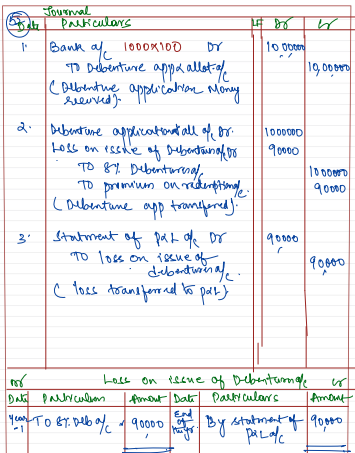 Journal
5) Date Particulars LF Dr Cr
1. Bank a/c 1000×100 Dr 10,00000
To Debenture app & allot. a/c 10,00000
( Debenture application Money
received).
2. Debenture application & all a/c Dr. 1000000
Loss on issue of Debenture a/c Dr 90000
To 8% Debenture a/c 1000000
To premium on redemption a/c 90000
( Debenture app transferred).
3. Statment of P&L a/c Dr 90000
To loss on issue of
debenture a/c 90000
( loss transferred to P&L)
Dr Loss on issue of Debenture a/c Cr
Date Particulars Amount Date Particulars Amount
Year-1 To 8% Deb a/c 90000 End of the yr. By statment of P&L a/c 90000